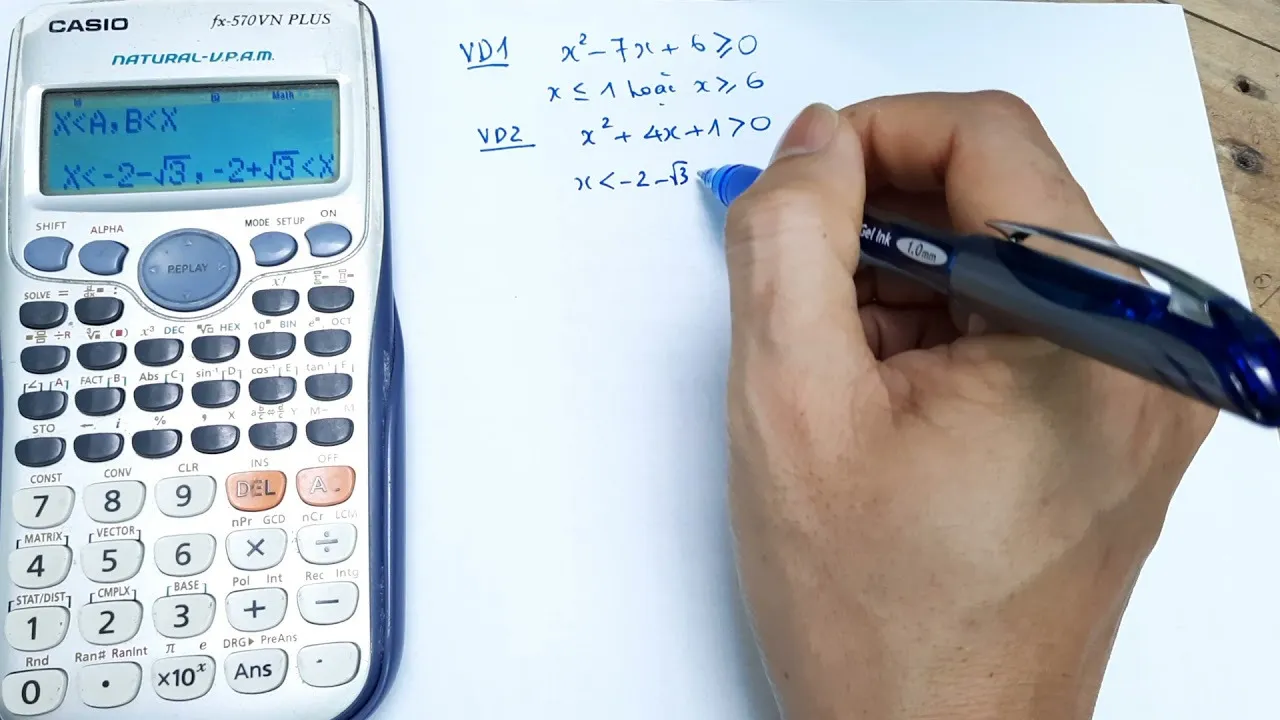 CASIO
fx-570VN PLUS
NATURAL-V.P.A.M.
Math
X<A,B<X
X<-2-√3,-2+√3<X
SHIFT ALPHA MODE SETUP ON
REPLAY
SOLVE = d/dx x!
÷R x³ DEC HEX 10■ BIN e■ OCT
∠ A FACT B Abs C sin⁻¹ D cos⁻¹ E tan⁻¹ F
STO ← i % , X Y M– M
CONST CONV CLR INS OFF
7 8 9 DEL A
MATRIX VECTOR nPr GCD nCr LCM
4 5 6 × ÷
STAT/DIST CMPLX BASE Pol Int Rec Intg
1 2 3 + −
Rnd Ran# RanInt π e DRG▶ PreAns
0 • ×10ˣ Ans
VD1 x² - 7x + 6 ⩾ 0
x ≤ 1 hoặc x ⩾ 6
VD2 x² + 4x + 1 > 0
x < -2 - √3
Gel Ink 1.0mm